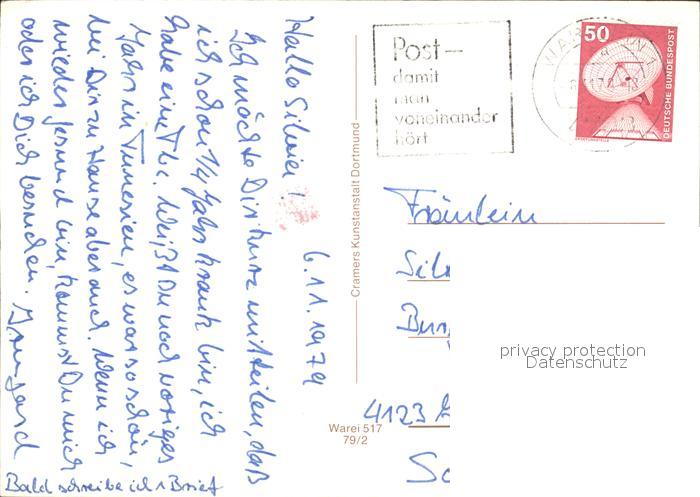 Hallo Silvia!
6.11.1979
Ich möchte Dir kurz mitteilen, daß
ich schon 1/4 Jahr krank bin, ich
habe eine Tbc. Weißt Du noch voriges
Jahr in Tunesien, es war so schön,
bei Dir zu Hause aber auch. Wenn ich
wieder gesund bin, kommst Du mich
oder ich Dich besuchen. Irmgard
Bald schreibe ich 1 Brief
Cramers Kunstanstalt Dortmund
Warei 517
79/2
Post-
damit
man
voneinander
hört
50
DEUTSCHE BUNDESPOST
Fräulein
Sil
4123
privacy protection
Datenschutz